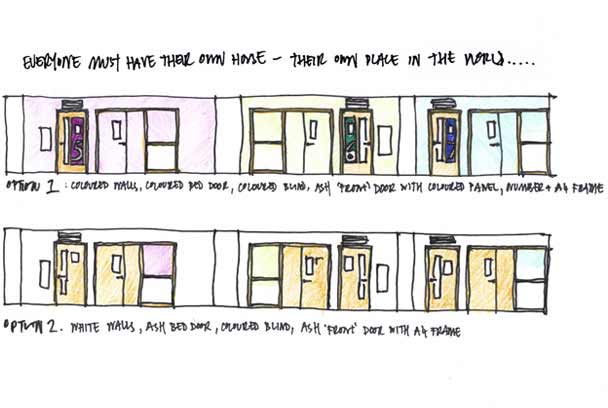 EVERYONE MUST HAVE THEIR OWN HOME – THEIR OWN PLACE IN THE WORLD.....
5 6 7
OPTION 1 : COLOURED WALLS, COLOURED BED DOOR, COLOURED BLIND, ASH 'FRONT' DOOR WITH COLOURED PANEL, NUMBER + A4 FRAME
OPTION 2. WHITE WALLS, ASH BED DOOR, COLOURED BLIND, ASH 'FRONT' DOOR WITH A4 FRAME